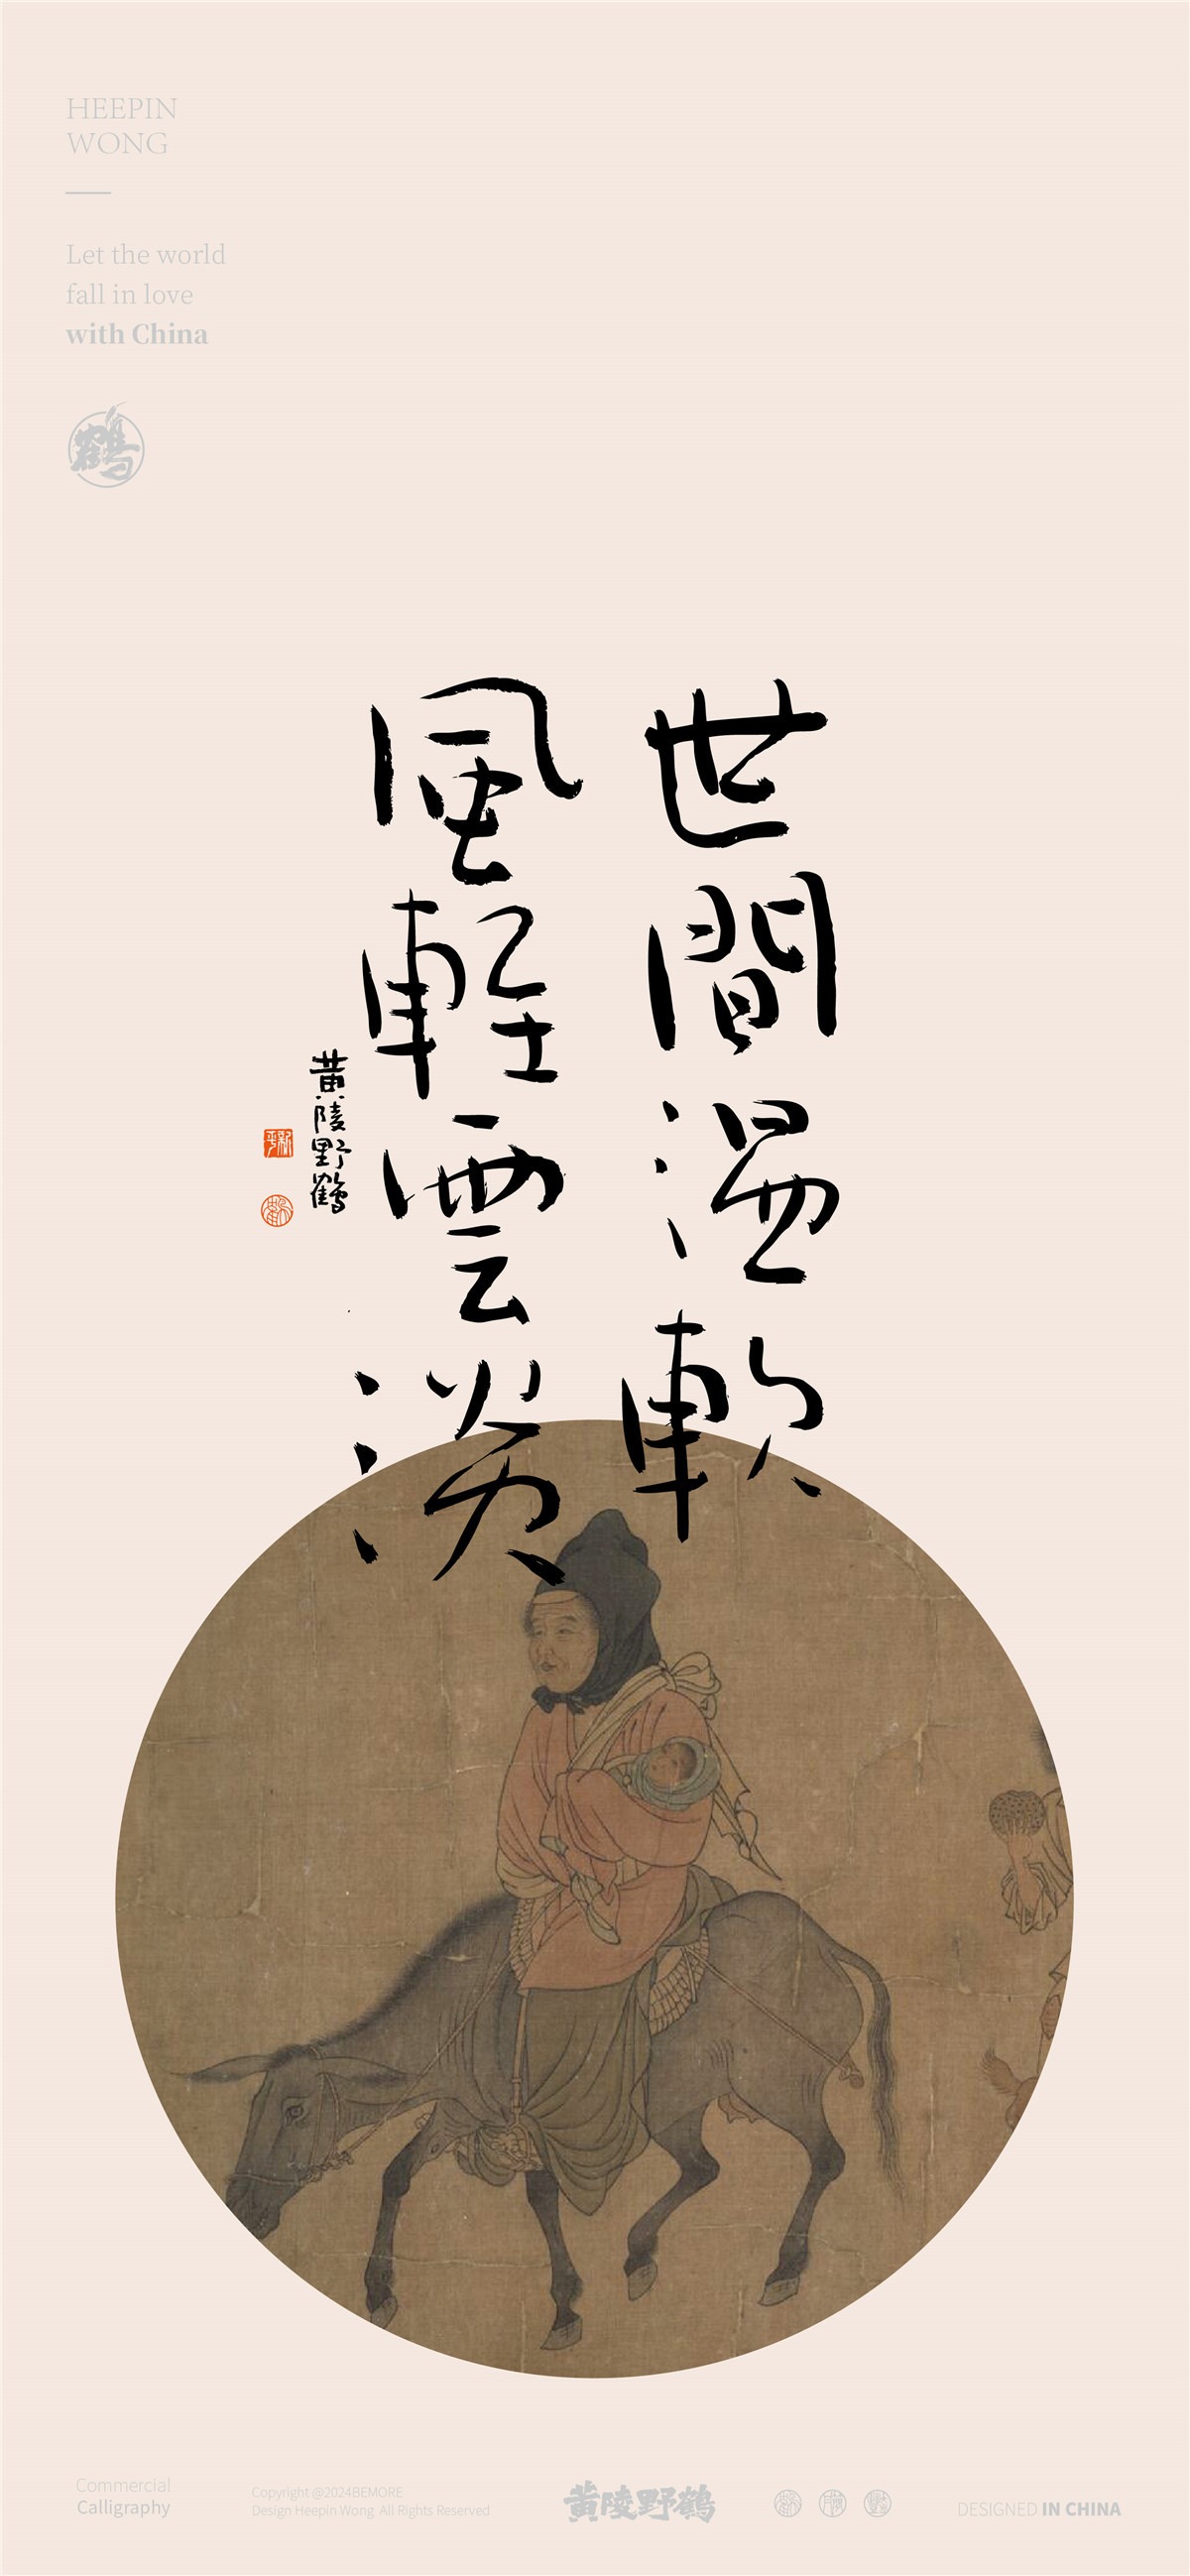 HEEPIN
WONG
Let the world
fall in love
with China
鶴
世間溫軟
風輕雲淡
黄陵野鶴
Commercial
Calligraphy
Copyright @2024BEMORE
Design Heepin Wong All Rights Reserved
黄陵野鶴
DESIGNED IN CHINA